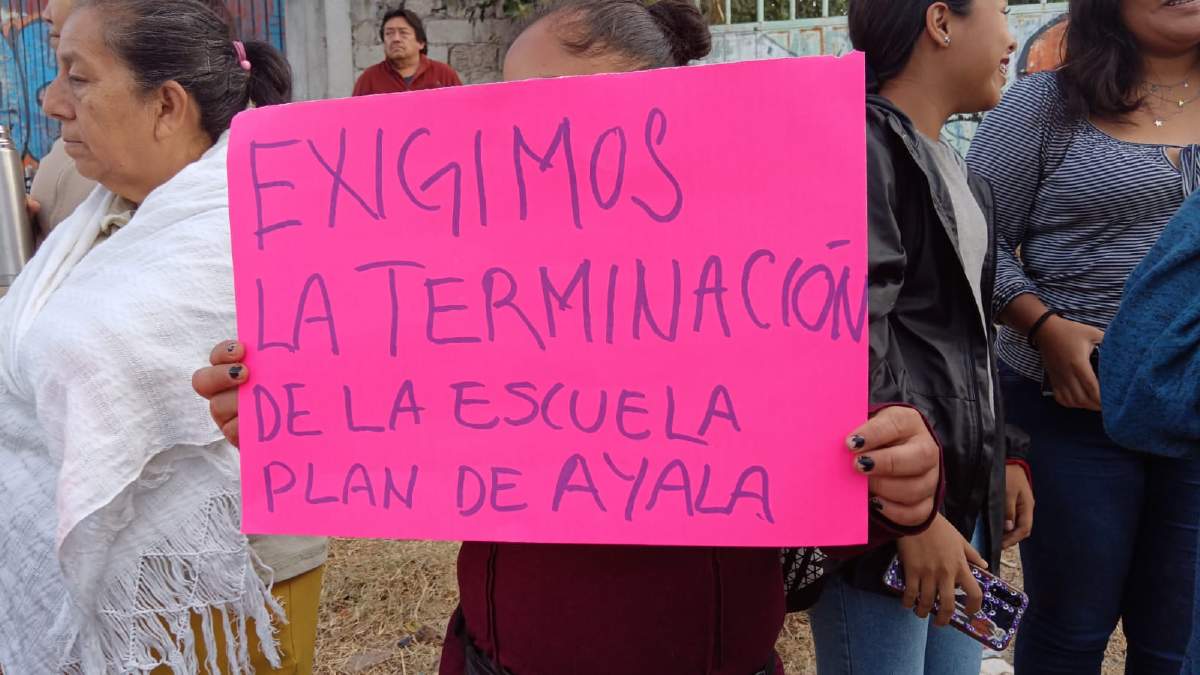 EXIGIMOS
LA TERMINACIÓN
DE LA ESCUELA
PLAN DE AYALA